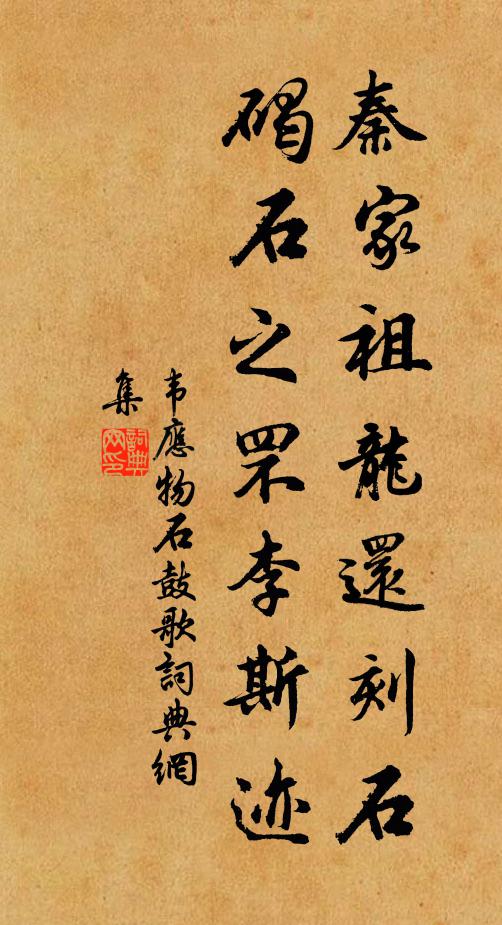 秦家祖龍還刻石
碣石之罘李斯迹
韦應物石鼓歌詞典網
集
詞典
网印